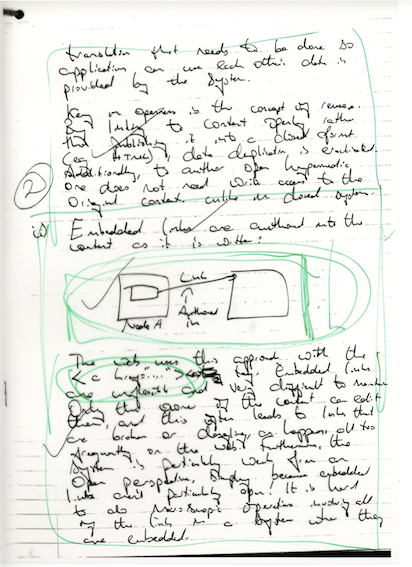 translation that needs to be done so
application can use each others data is
provided by the system.
Key in openness is the concept of reuse.
By linking to content openly rather
than publishing it into a closed format
(eg HTML), data duplication is eradicated.
Additionally, to author open hypermedia
one does not need write access to the
original content unlike in closed systems.
2
ii) Embedded links are authored into the
content as it is written:
Link
Authored
in
Node A
The web uses this approach with the
<a href="...."> tag. Embedded links
are inflexible and very difficult to maintain
Only the owner of the content can edit
them, and this often leads to links that
are broken or dangling, as happens all too
frequently on the web. Furthermore, the
system is particularly weak from an
Open perspective, simply because embedded
links aren't particularly open. It is hard
to do macroscopic operations involving all
of the links in a system when they
are embedded.